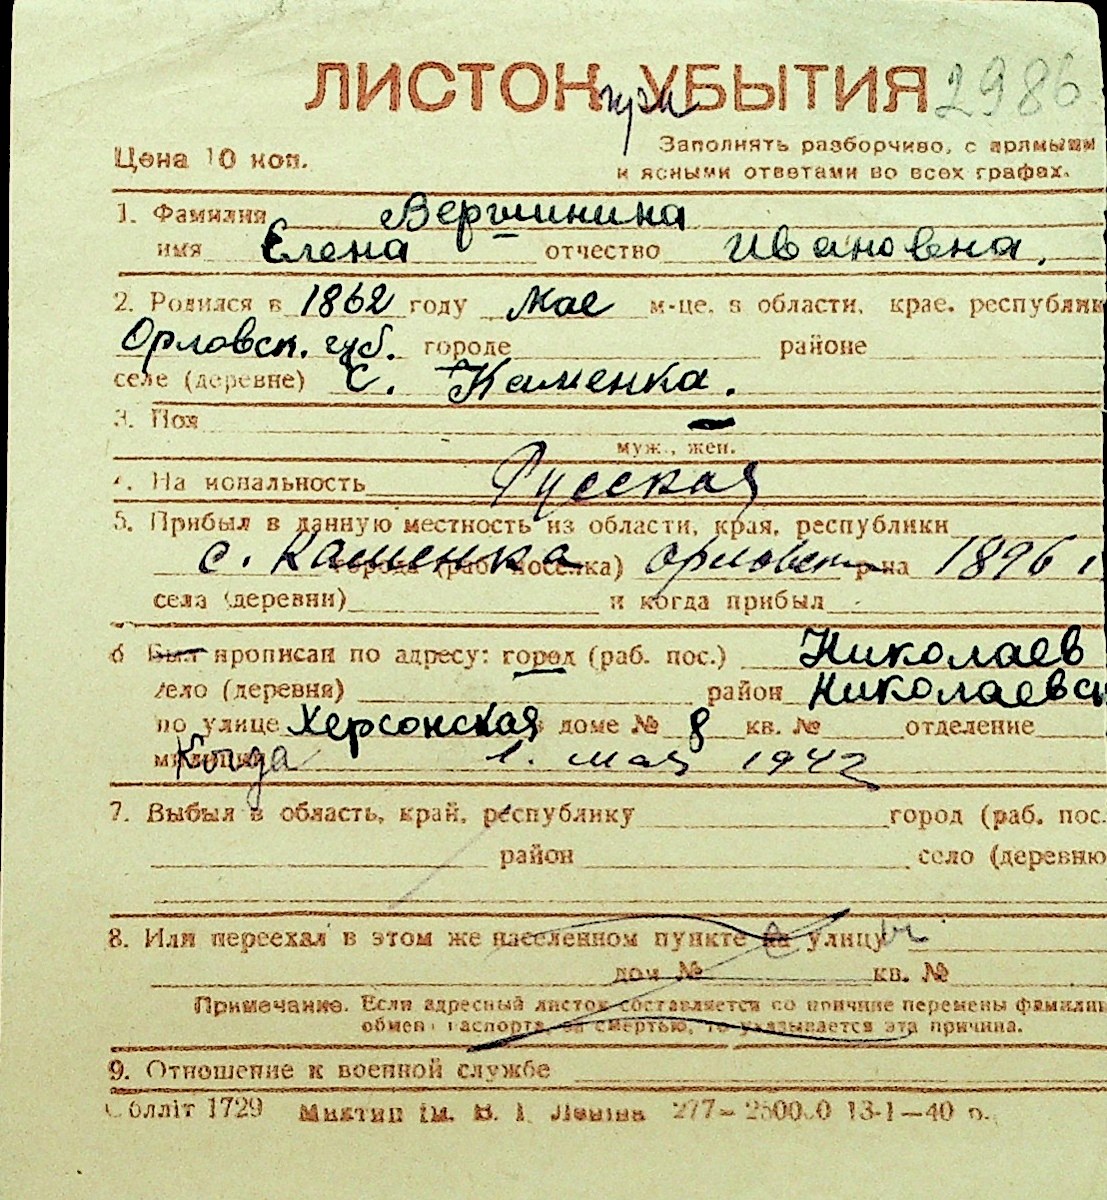 ЛИСТОК УБЫТИЯ 2986
при
Цена 10 коп.
Заполнять разборчиво, с прямыми
и ясными ответами во всех графах.
1. Фамилия Вершинина
имя Елена отчество Ивановна.
2. Родился в 1862 году мае м-це, в области, крае, республик
Орловск. губ. городе районе
селе (деревне) с. Каменка.
3. Пол
муж., жен.
4. На иональность Русская
5. Прибыл в данную местность из области, края, республики
с. Каменка города (раб. поселка) орловск р-на 1896 г.
села (деревни) и когда прибыл
6 Был прописан по адресу: город (раб. пос.) Николаев
село (деревня) район Николаевск
по улице Херсонская в доме № 8 кв. № отделение
милиции Когда 1. мая 1942
7. Выбыл в область, край, республику город (раб. пос.
район село (деревню
8. Или переехал в этом же населенном пункте на улицу
дом № кв. №
Примечание. Если адресный листок составляется по причине перемены фамилии
обмен паспорта, за смертью, то указывается эта причина.
9. Отношение к военной службе
Облліт 1729 Миктип ім. В. І. Леніна 277— 13-1—40 р.